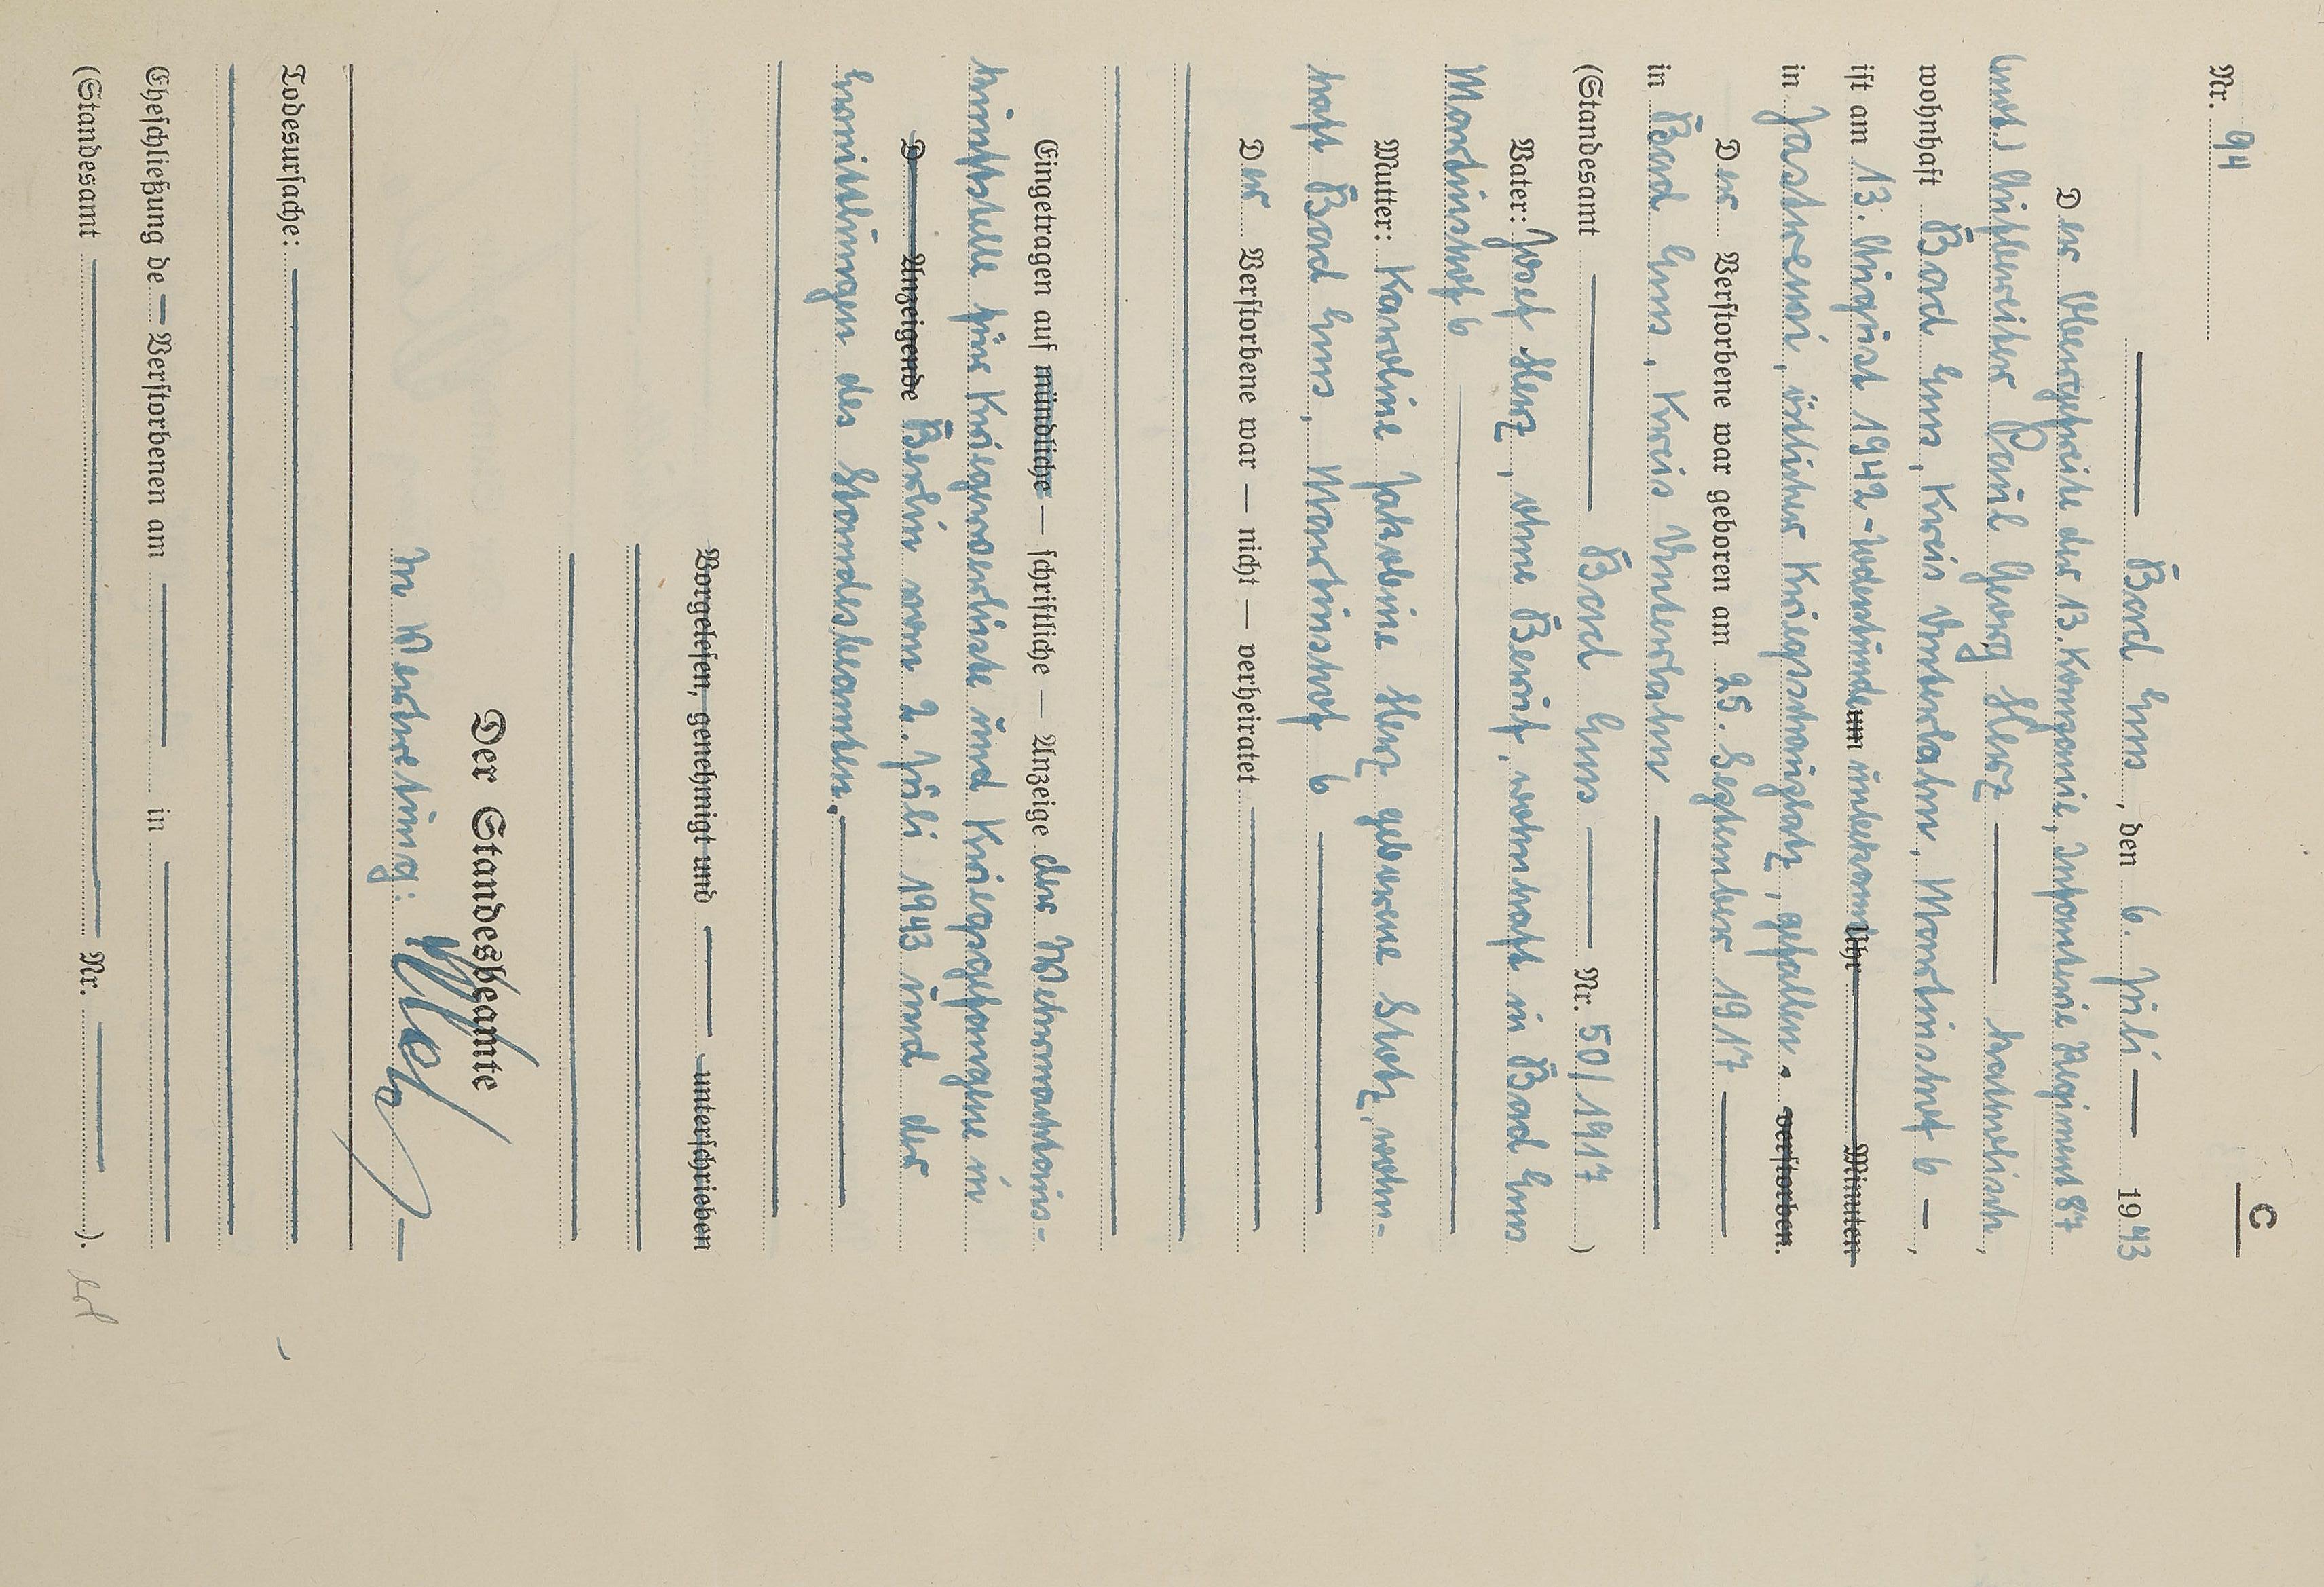 C
Nr. 94
Bad Ems, den 6. Juli 1943
Der Obergefreite der 13. Kompanie, Infanterie Regiment 87
(mot.) Hilfsarbeiter Paul Georg Herz katholisch,
wohnhaft Bad Ems, Kreis Unterlahn, Martinshof 6,
ist am 13. August 1942 - Todesstunde um unbekannt Uhr Minuten
in Jastremoi, östlicher Kriegsschauplatz, gefallen. verstorben.
Der Verstorbene war geboren am 25. September 1917
in Bad Ems, Kreis Unterlahn
(Standesamt Bad Ems Nr. 50/1917)
Vater: Josef Herz, ohne Beruf, wohnhaft in Bad Ems
Martinshof 6
Mutter: Karoline Jakobine Herz geborene Stotz, wohn-
haft Bad Ems, Martinshof 6
Der Verstorbene war — nicht — verheiratet
Eingetragen auf mündliche — schriftliche — Anzeige der Wehrmachtaus-
kunftstelle für Kriegerverluste und Kriegsgefangene in
D Anzeigende Berlin vom 2. Juli 1943 und der
Ermittlungen des Standesbeamten.
Vorgelesen, genehmigt und unterschrieben
Der Standesbeamte
In Vertretung:
Todesursache:
Eheschließung de Verstorbenen am in
(Standesamt Nr. ).